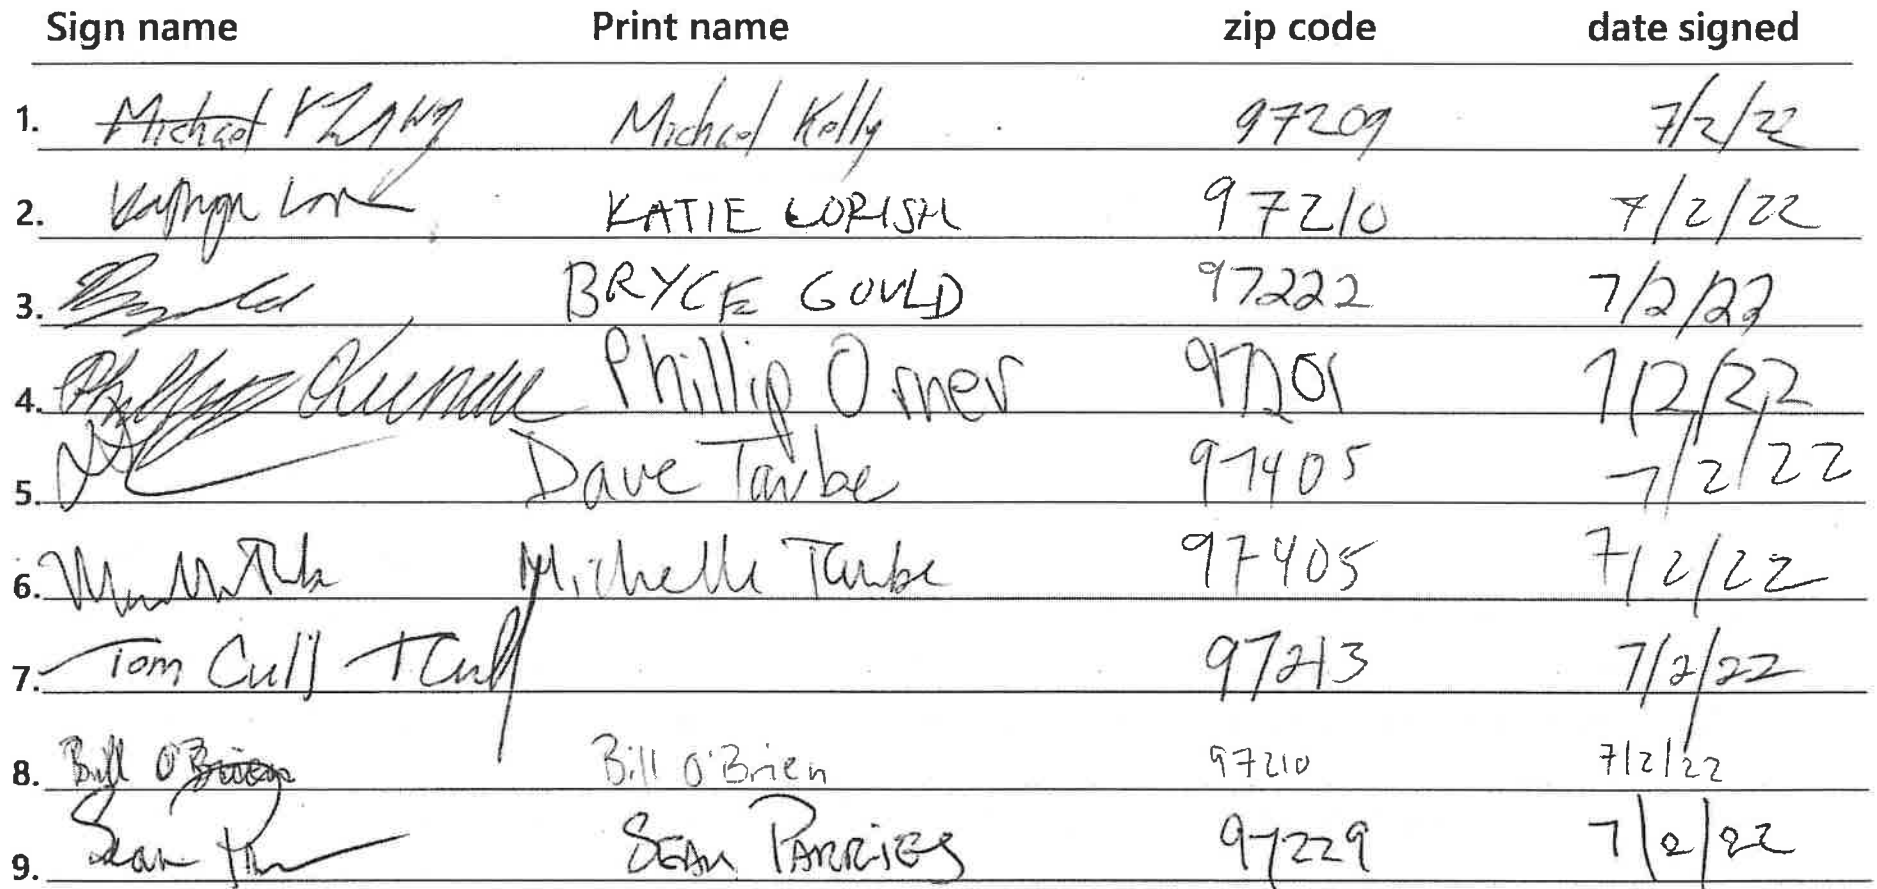 Sign name Print name zip code date signed
1. Michael Michael Kelly 97209 7/2/22
2. Kathryn KATIE LORISH 97210 7/2/22
3. BRYCE GOULD 97222 7/2/22
4. Phillip Orner 97201 7/2/22
5. Dave Taube 97405 7/2/22
6. Michelle Taube 97405 7/2/22
7. Tom Cull T Cull 97213 7/2/22
8. Bill O'Brien Bill O'Brien 97210 7/2/22
9. Sean SEAN PARRIES 97229 7/2/22